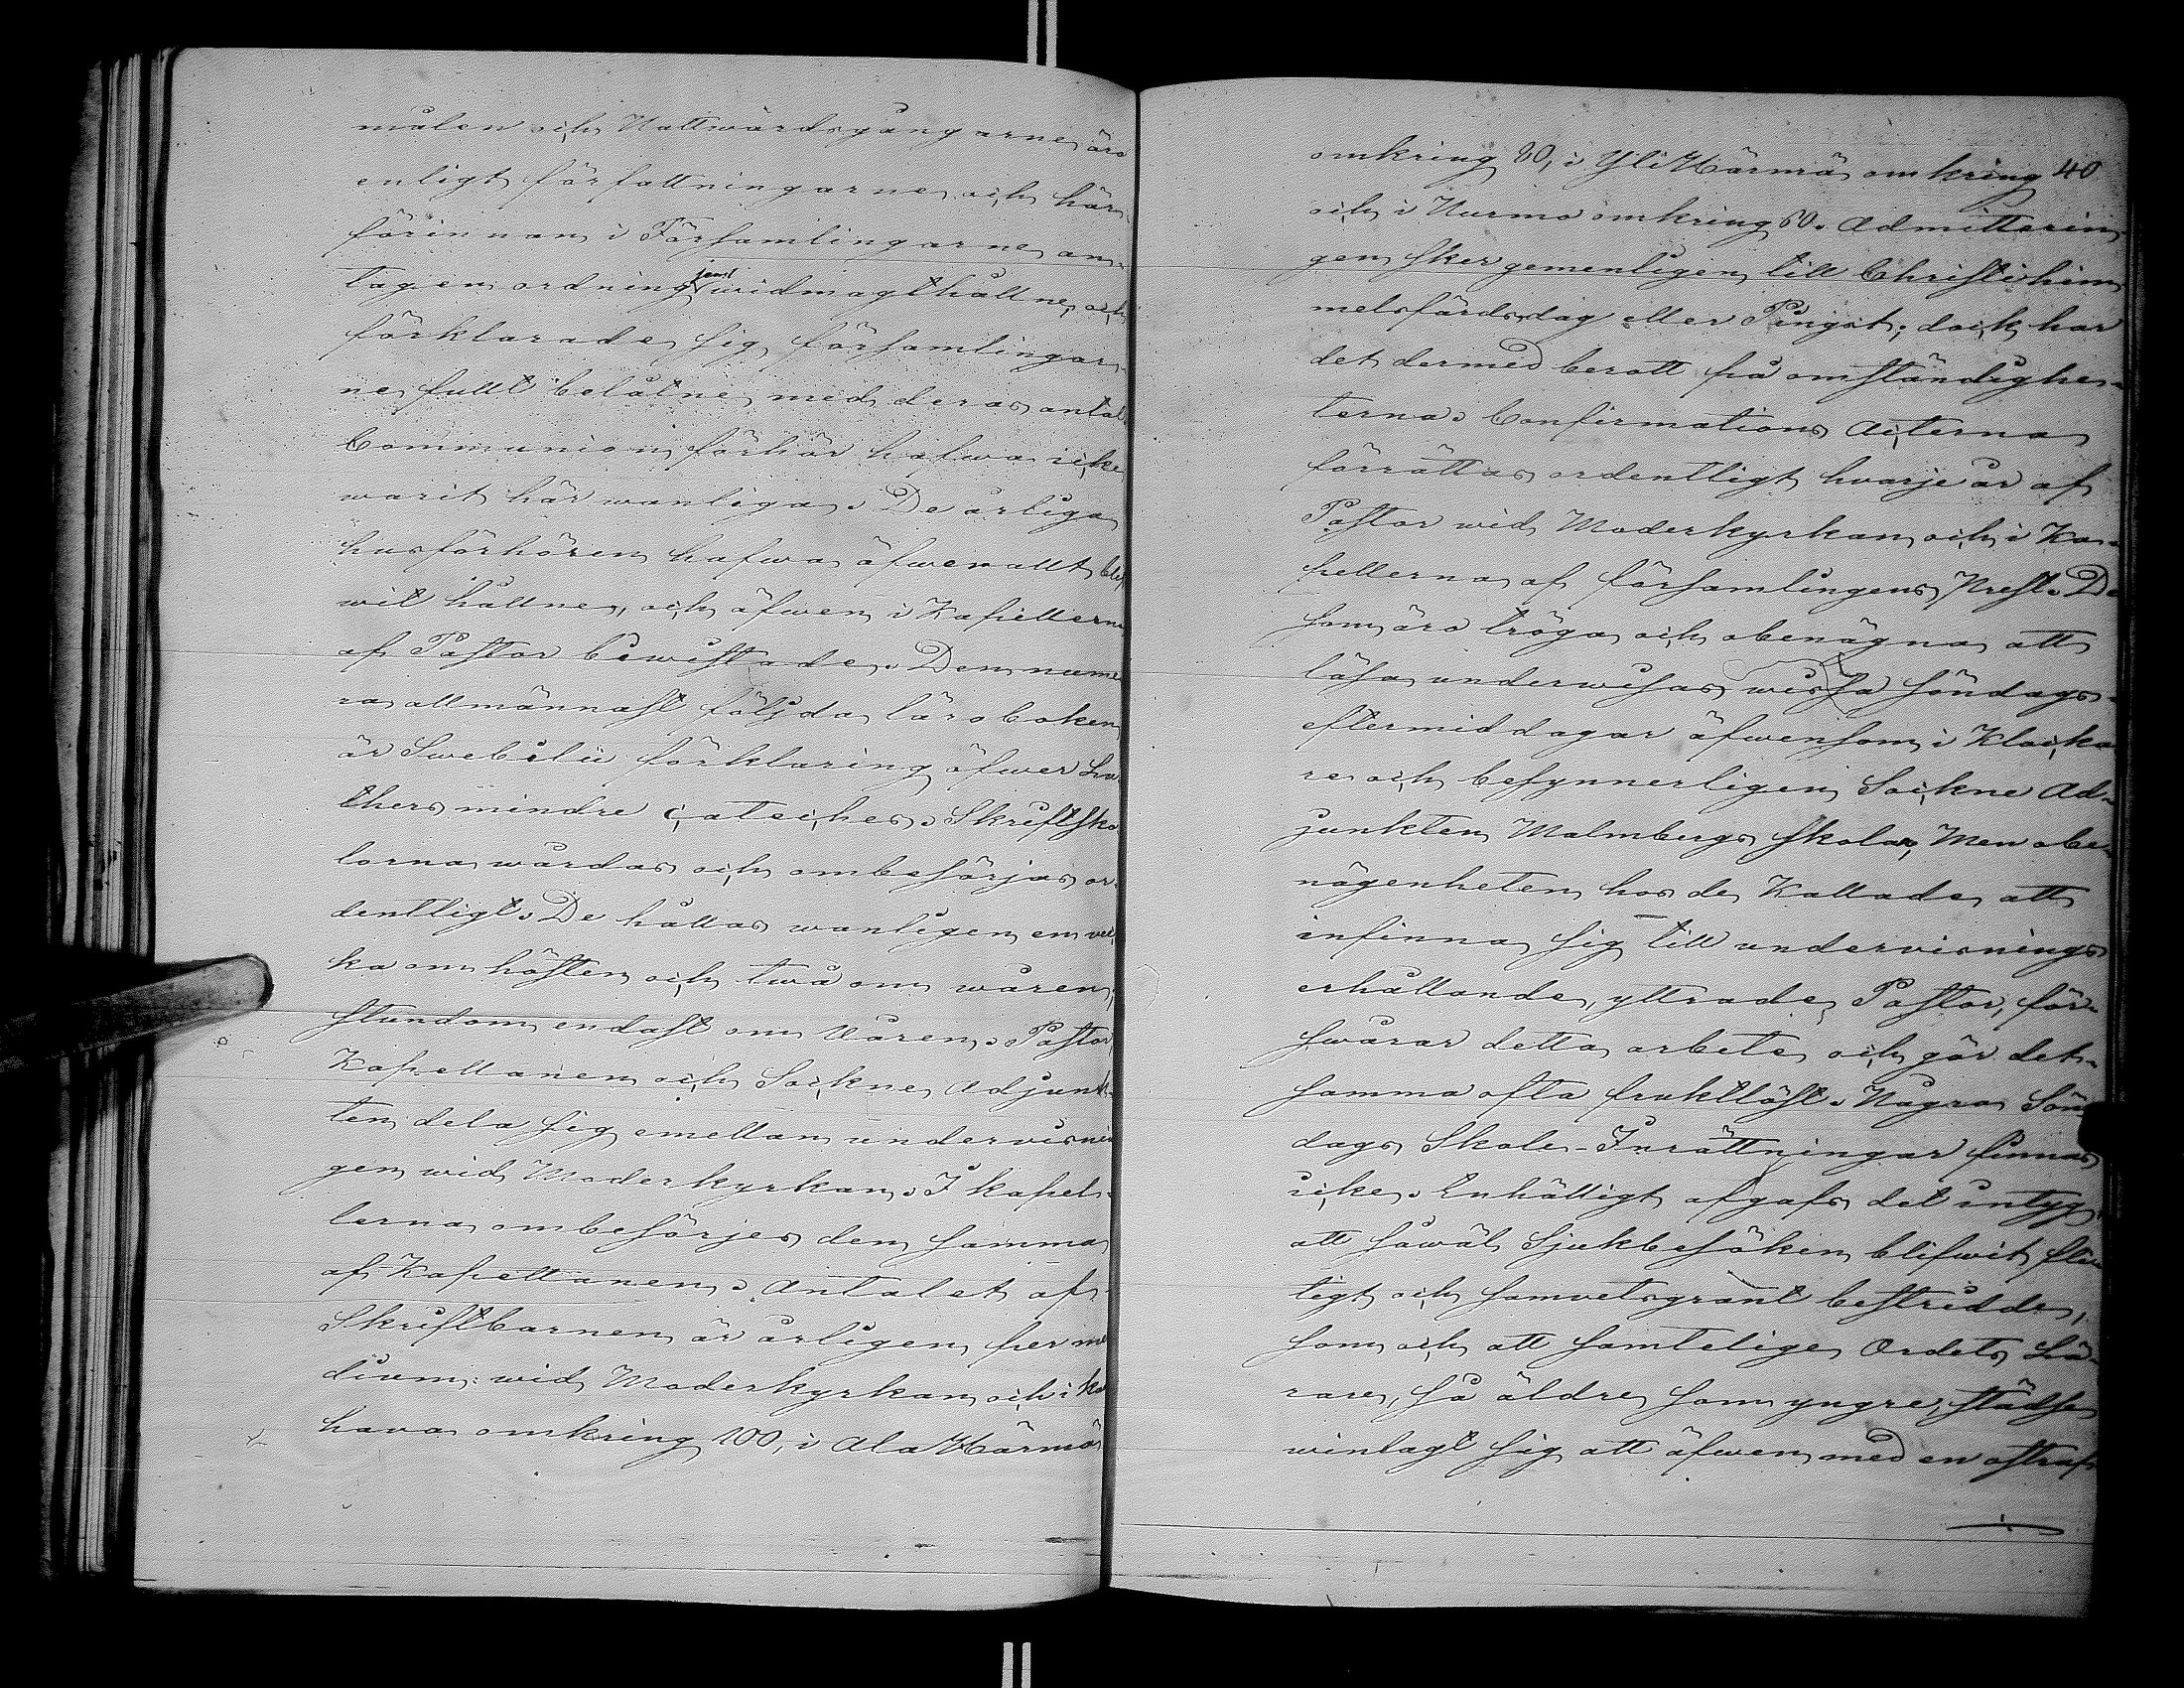 målen och Nattwardsgångarne äro
enligt författningarne och här
förinnan i Församlingarne an-
tagen ordning jemt widmagthållne, och
förklarade sig församlingar-
ne fullt belåtne med deras antal.
Communion förhör hafwa icke
warit här wanliga. De årliga
husförhören hafwa äfwen allt blif-
wit hållne, och äfwen i Kapellerna
af Pastor bewistade. Den nume-
ra allmännast följda läroboken
är Swebilii förklaring öfwer Lu-
thers mindre Cateches. Skriftsko-
lorna wårdas och ombesörjas or-
dentligt. De hållas wanligen en vec-
ka om hösten och twå om wåren,
stundom endast om Våren. Pastor,
Kapellanen och Sockne Adjunk-
ten dela sig emellan undervisnin-
gen wid Moderkyrkan. I kapel-
lerna ombesörjes den samma
af Kapellanen. Antalet af
Skriftbarnen är årligen per me-
dium: wid Moderkyrkan och i Kau-
hava omkring 100, i Ala Härmä
omkring 80, i Yli Härmä omkring 40
och i Nurmo omkring 60. Admitterin-
gen sker gemenligen till Christi him-
melsfärdsdag eller Pingst; dock har
det dermed berott på omständighe-
terna. Confirmations Acterna
förrättas ordentligt hvarje år af
Pastor wid Moderkyrkan och i Ka-
pellerna af församlingens Prest. De
som äro tröga och obenägna att
läsa underwisas wissa söndags-
eftermiddagar äfwensom i Klocka-
re och besynnerligen Sockne Ad-
junkten Malmbergs skolor, Men obe-
nägenheten hos de Kallade att
infinna sig till undervisnings
erhållande, yttrade Pastor, för-
swårar detta arbete och gör det-
samma ofta fruktlöst. Några Sön-
dags Skole-Inrättningar finnas
icke. Enhälligt afgafs det intyg,
att såwäl Sjukbesöken blifwit flit-
ligt och samvetsgrant bestridde,
som och att samtelige Ordets Lä-
rare, så äldre som yngre, städse
winlagt sig att äfwen med en ostraf-